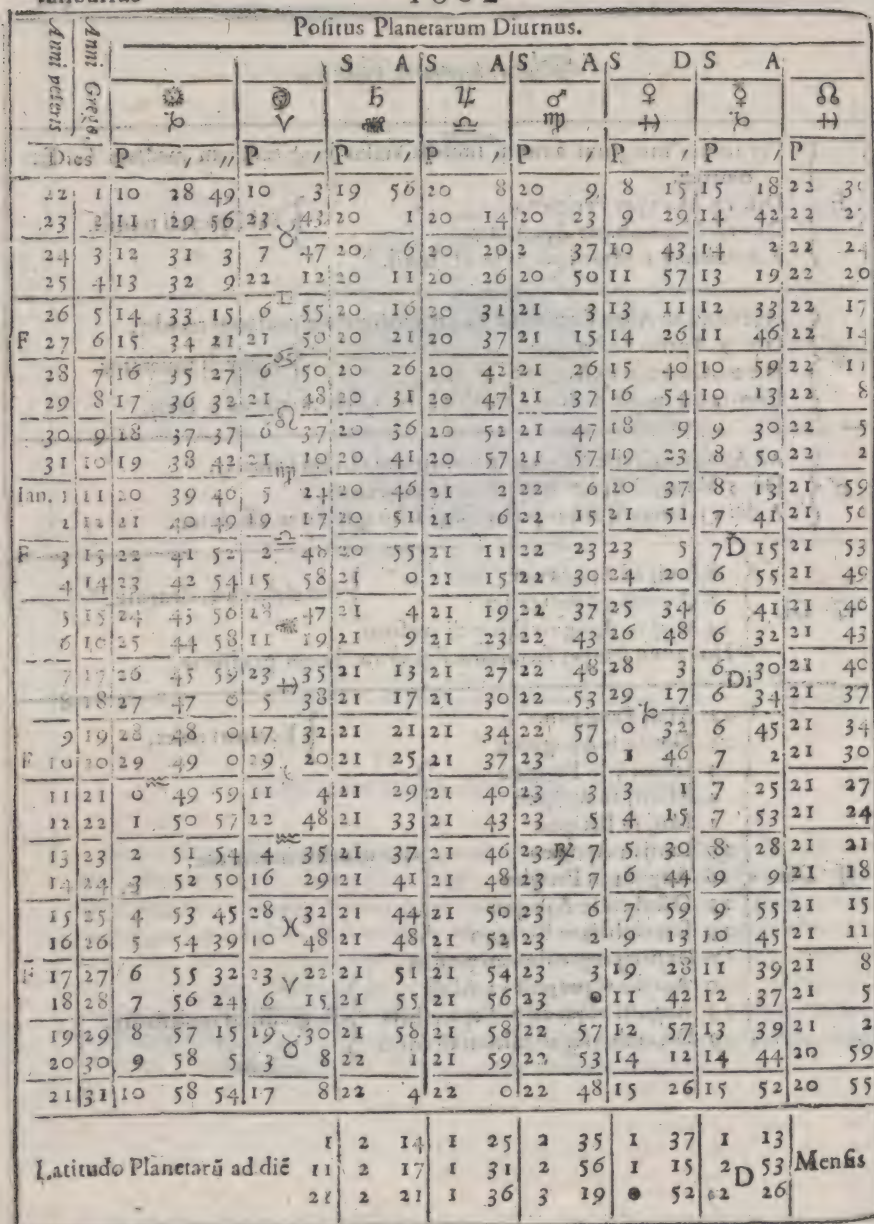 Positus Planetarum Diurnus.
Anni veteris Anni Grego. S A S A S A S D S A
☉ ☽ ♄ ♃ ♂ ♀ ☿ ☊
♑ ♈ ♒ ♎ ♍ ♐ ♑ ♓
Dies P ′ ″ P ′ P ′ P ′ P ′ P ′ P ′ P
22 1 10 28 49 10 3 19 56 20 8 20 9 8 15 15 18 22
23 2 11 29 56 23 43 20 1 20 14 20 23 9 29 14 42 22
24 3 12 31 3 7 ♉ 47 20 6 20 20 2 37 10 43 14 2 22
25 4 13 32 9 22 12 20 11 20 26 20 50 11 57 13 19 22 20
26 5 14 33 15 6 ♊ 55 20 16 20 31 21 3 13 11 12 33 22 17
F 27 6 15 34 21 21 50 20 21 20 37 21 15 14 26 11 46 22 14
28 7 16 35 27 6 ♋ 50 20 26 20 42 21 26 15 40 10 59 22 11
29 8 17 36 32 21 48 20 31 20 47 21 37 16 54 10 13 22 8
30 9 18 37 37 6 ♌ 37 20 36 20 52 21 47 18 9 9 30 22 5
31 10 19 38 42 21 10 20 41 20 57 21 57 19 23 8 50 22 2
Ian. 1 11 20 39 46 5 ♍ 24 20 46 21 2 22 6 20 37 8 13 21 59
2 12 21 40 49 19 17 20 51 21 6 22 15 21 51 7 41 21 56
F 3 13 22 41 52 2 ♎ 48 20 55 21 11 22 23 23 5 7 D 15 21 53
4 14 23 42 54 15 58 21 0 21 15 22 30 24 20 6 55 21 49
5 15 24 43 56 28 47 21 4 21 19 22 37 25 34 6 41 21 46
6 16 25 44 58 11 19 21 9 21 23 22 43 26 48 6 32 21 43
7 17 26 45 59 23 35 21 13 21 27 22 48 28 3 6 Di 30 21 40
8 18 27 47 0 5 ♐ 38 21 17 21 30 22 53 29 17 6 34 21 37
9 19 28 48 0 17 32 21 21 21 34 22 57 0 ♑ 32 6 45 21 34
F 10 20 29 49 0 29 20 21 25 21 37 23 0 1 46 7 2 21 30
11 21 0 ♒ 49 59 11 4 21 29 21 40 23 3 3 1 7 25 21 27
12 22 1 50 57 22 48 21 33 21 43 23 5 4 15 7 53 21 24
13 23 2 51 54 4 ♒ 35 21 37 21 46 23 ℞ 7 5 30 8 28 21 21
14 24 3 52 50 16 29 21 41 21 48 23 7 6 44 9 9 21 18
15 25 4 53 45 28 32 21 44 21 50 23 6 7 59 9 55 21 15
16 26 5 54 39 10 ♓ 48 21 48 21 52 23 2 9 13 10 45 21 11
F 17 27 6 55 32 23 22 21 51 21 54 23 3 19 28 11 39 21 8
18 28 7 56 24 6 ♈ 15 21 55 21 56 23 0 11 42 12 37 21 5
19 29 8 57 15 19 30 21 58 21 58 22 57 12 57 13 39 21 2
20 30 9 58 5 3 ♉ 8 22 1 21 59 22 53 14 12 14 44 20 59
21 31 10 58 54 17 8 22 4 22 0 22 48 15 26 15 52 20 55
1 2 14 1 25 2 35 1 37 1 13
Latitudo Planetarū ad diē 11 2 17 1 31 2 56 1 15 2 D 53 Mensis
21 2 21 1 36 3 19 0 52 2 26